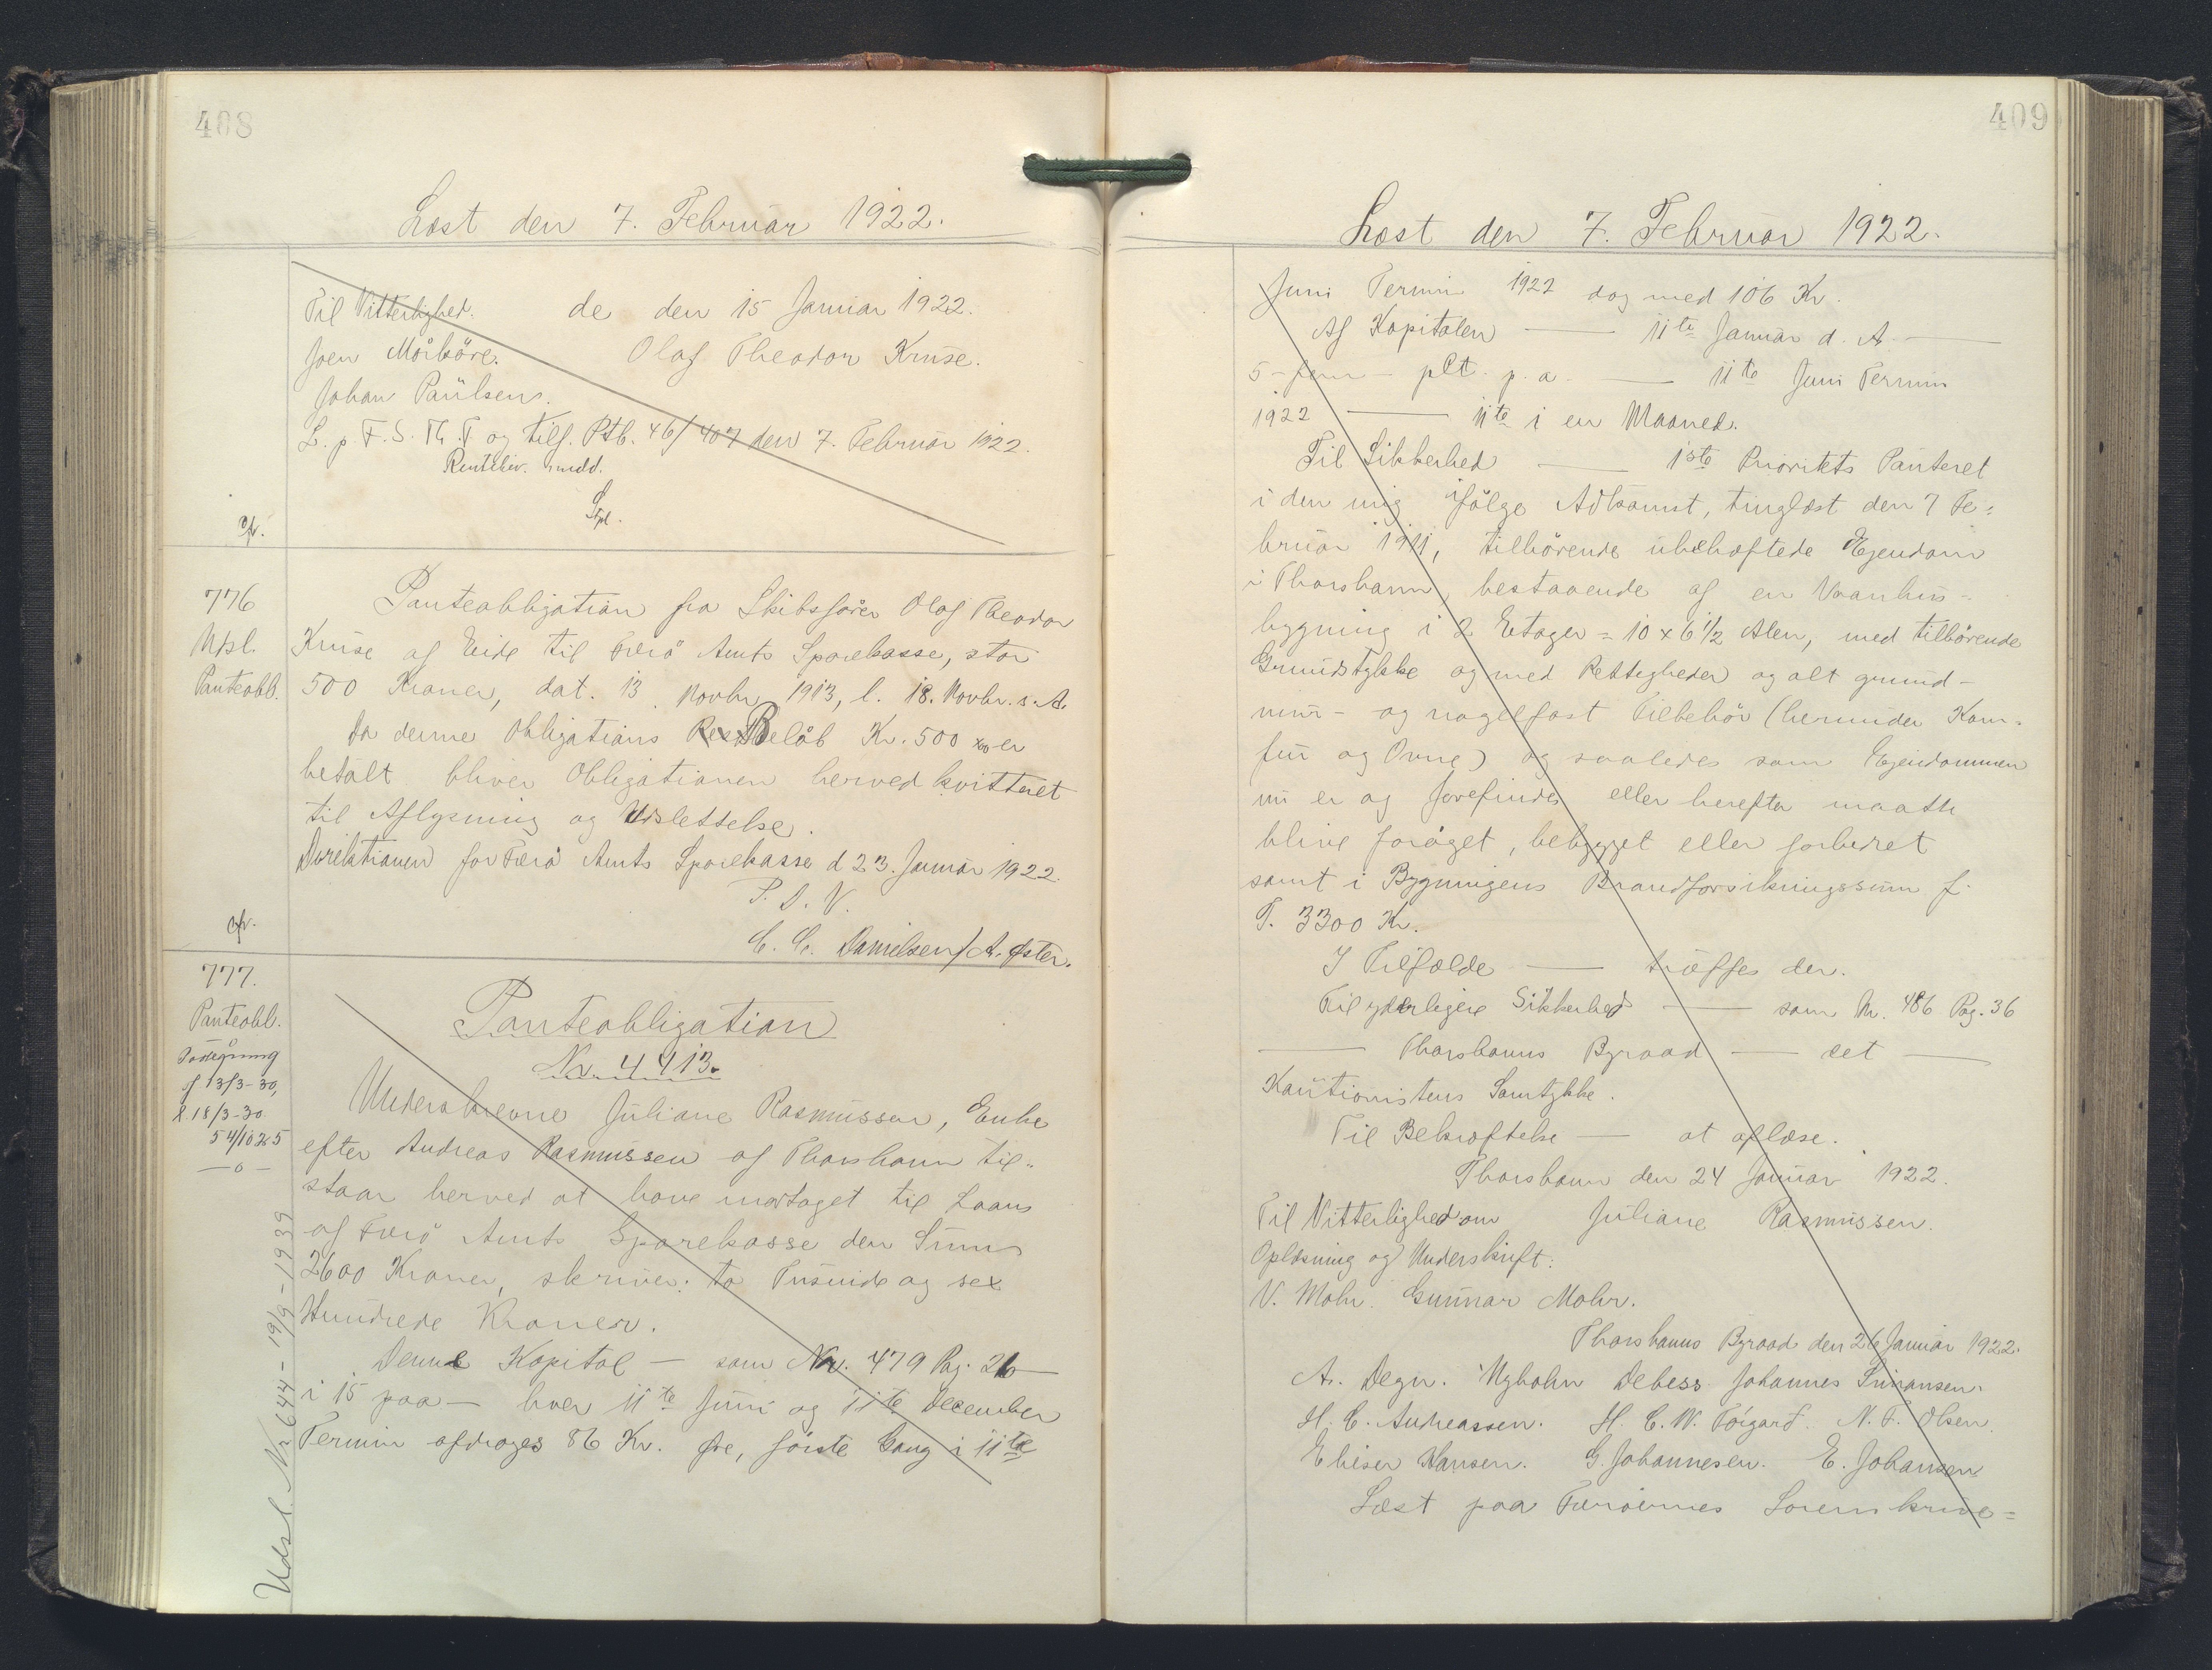 408
Læst den 7. Februar 1922.
Til Vitterlighed. de den 15 Januar 1922.
Joen Mørköre. Olaf Theodor Kruse.
Johan Paulsen.
L. p. F. S. Th. T og tilf. Ptb. 46/407 den 7. Februar 1922.
cfr.
776
Udsl.
Panteobl.
Panteobligation fra Skibsfører Olaf Theodor
Kruse af Eide til Færö Amts Sparekasse, stor
500 Kroner, dat. 13. Novbr. 1913, l. 18. Novbr. s. A.
Da denne Obligations Beløb Kr. 500 er
betalt bliver Obligationen herved kvitteret
til Aflysning og Udslettelse.
Direktionen for Færö Amts Sparekasse d 23. Januar 1922.
P. D. V.
C. C. Danielsen / A. Øster.
cfr.
777.
Panteobl.
Paategning
af 13/3-30,
l 18/3-30
54/1025
—o—
Udsl. Nr 644 - 19/9 - 1939
Panteobligation
Nr. 4413.
Underskrevne Juliane Rasmussen, Enke
efter Andreas Rasmussen af Thorshavn til-
staar herved at have modtaget til Laans
af Færö Amts Sparekasse den Sum
2600 Kroner, skriver: to Tusinde og sex
Hundrede Kroner.
Denne Kapital — som Nr. 479 Pag. 26 —
i 15 paa — hver 11te Juni og 11te December
Termin afdrages 86 Kr. Øre, første Gang i 11te
409
Læst den 7. Februar 1922.
Juni Termin 1922 dog med 106 Kr.
Af Kapitalen — 11te Januar d. A. —
5 - fem - pCt. p. a. — 11te Juni Termin
1922 — 11te i en Maaned.
Til Sikkerhed — 1ste Prioritets Panteret
i den mig ifölge Adkomst, tinglæst den 7 Fe-
bruar 1911, tilhörende ubehæftede Ejendom
i Thorshavn, bestaaende af en Vaanhus-
bygning i 2 Etager = 10 x 6 1/2 Alen, med tilhörende
Grundstykke og med Rettigheder og alt grund-
mur- og nagelfast Tilbehör (herunder Kom-
fur og Ovne) og saaledes som Ejendommen
nu er og forefindes eller herefter maatte
blive foröget, bebygget eller forbedret
samt i Bygningens Brandforsikringssum f.
T. 3300 Kr.
I Tilfælde — træffes der.
Til yderligere Sikkerhed — som Nr. 486 Pag. 36
— Thorshavns Byraad — det —
Kautionistens Samtykke.
Til Bekræftelse — at aflæse.
Thorshavn den 24 Januar 1922.
Til Vitterlighed om Juliane Rasmussen.
Oplæsning og Underskrift:
V. Mohr. Gunnar Mohr.
Thorshavns Byraad den 26 Januar 1922.
A. Degn. Mybohn Debess. Johannes Simonsen.
H. C. Andreassen. H. C. W. Tórgarð. N. F. Olsen.
Elieser Hansen. G. Johannesen. E. Johansen.
Læst paa Færøernes Sorenskrive-